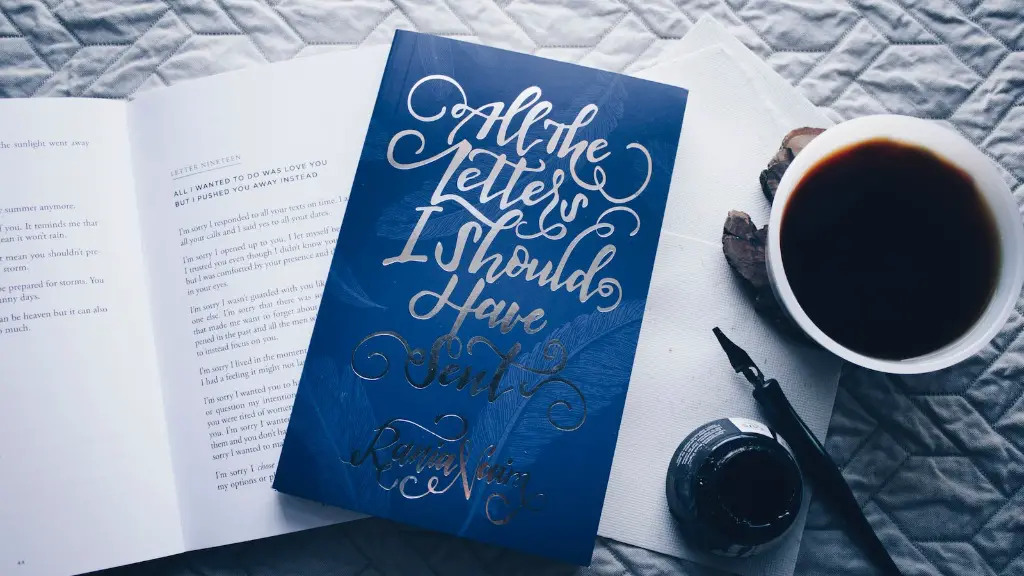 he sunlight went away
summer anymore.
f you. It reminds me that
ean it won't rain.
t mean you shouldn't pre-
storm.
e prepared for storms. You
nny days.
an be heaven but it can also
o much.
LETTER NINETEEN
ALL I WANTED TO DO WAS LOVE YOU
BUT I PUSHED YOU AWAY INSTEAD
I'm sorry I responded to all your texts on time, I a
all your calls and I said yes to all your dates.
I'm sorry I opened up to you. I let myself be
I trusted you even though I didn't know you
but I was comforted by your presence and
in your eyes.
I'm sorry I wasn't guarded with you lik
one else. I'm sorry that there was so
that made me want to forget about
pened in the past and all the men
to instead focus on you.
I'm sorry I lived in the moment
I had a feeling it might not la
I'm sorry I wanted you to h
or question my intention
you were tired of women
you. I'm sorry I wanted
them and you don't h
sorry I wanted to ma
I'm sorry I chose
my options or p
All the
Letters
I Should
Have
Sent
Rania Naim